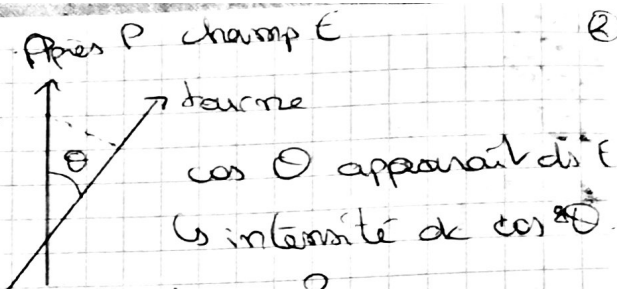 Après P champ E
②
tourne
θ
cos θ apparaît ds E
↳ intensité dc cos²θ